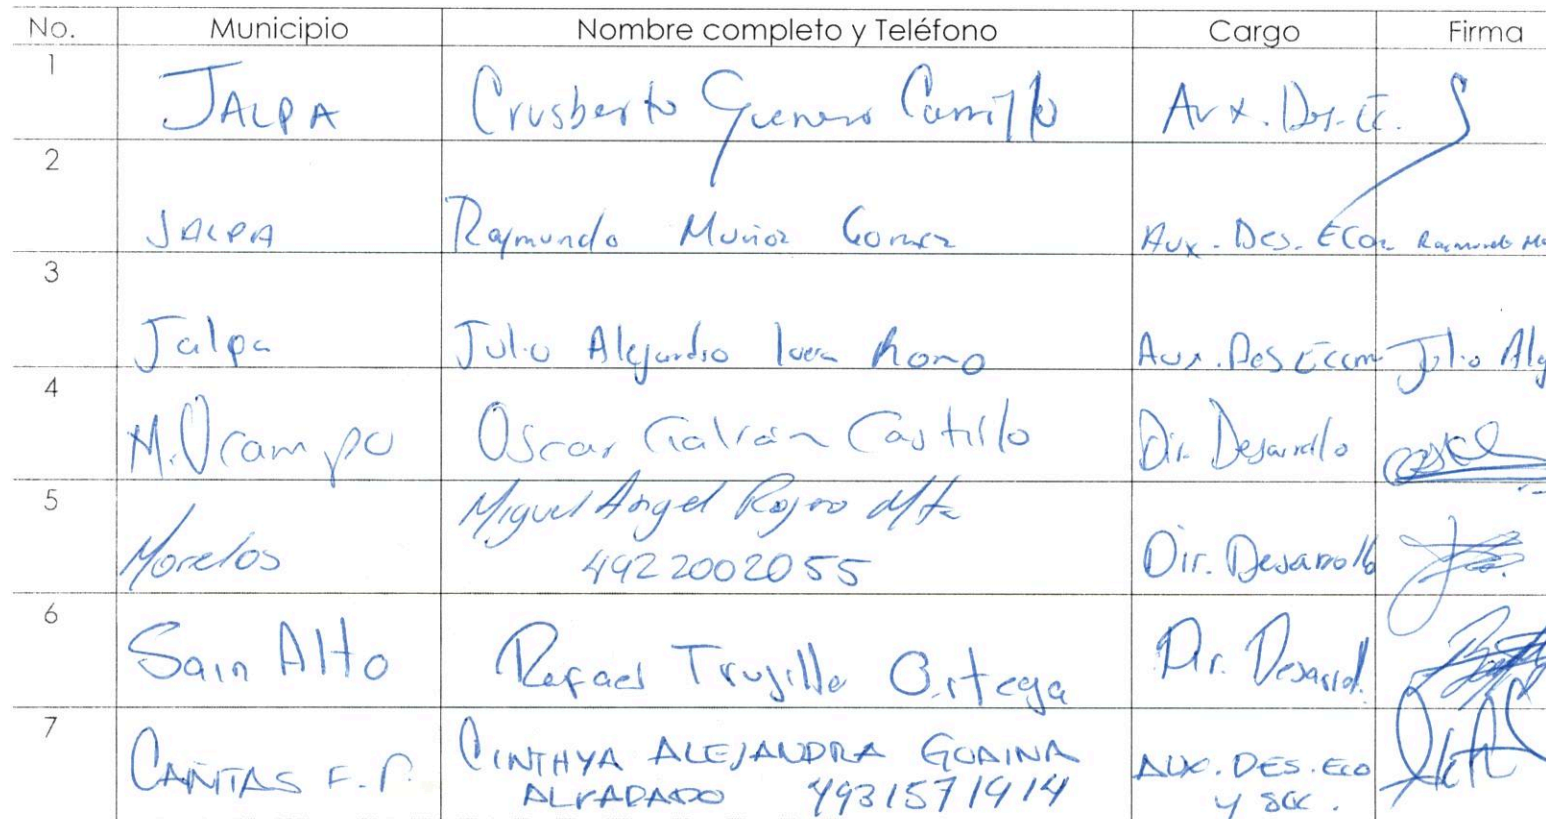 No. Municipio Nombre completo y Teléfono Cargo Firma
1 JALPA Crusberto Carrillo Aux. Des. Ec.
2 JALPA Raymundo Muñoz Gomez Aux. Des. ECon Raymundo
3 Jalpa Julio Alejandro Aux. Des Econ Julio
4 M. Ocampo Oscar Galván Castillo Dir. Desarrollo
5 Morelos Miguel Angel Dir. Desarrollo
4922002055
6 Sain Alto Rafael Trujillo Ortega Dir. Desarrol.
7 CAÑITAS F. P. CINTHYA ALEJANDRA AUX. DES. ECO
ALVARADO 4931571914 y soc.